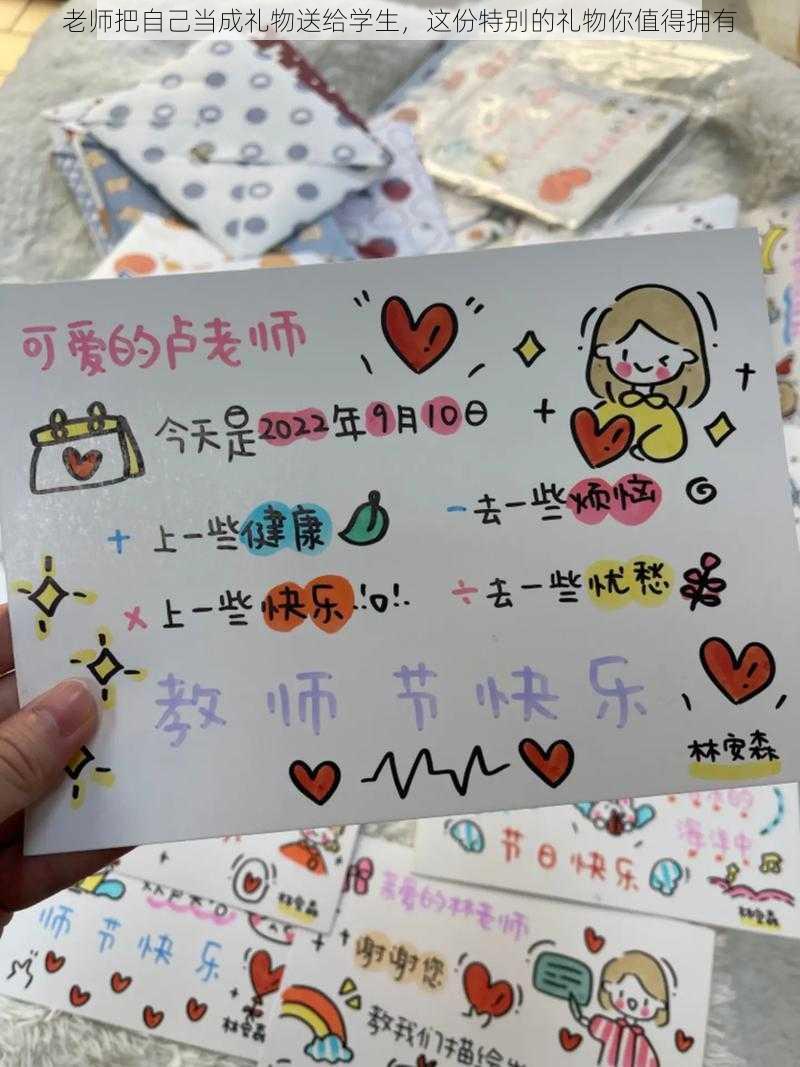 老师把自己当成礼物送给学生，这份特别的礼物你值得拥有
可爱的卢老师
今天是2022年9月10日
+ 上一些健康
- 去一些烦恼
× 上一些快乐
÷ 去一些忧愁
教师节快乐
林安森
海洋中
节日快乐
林安森
师节快乐
林安森
亲爱的林老师
谢谢您
教我们描绘